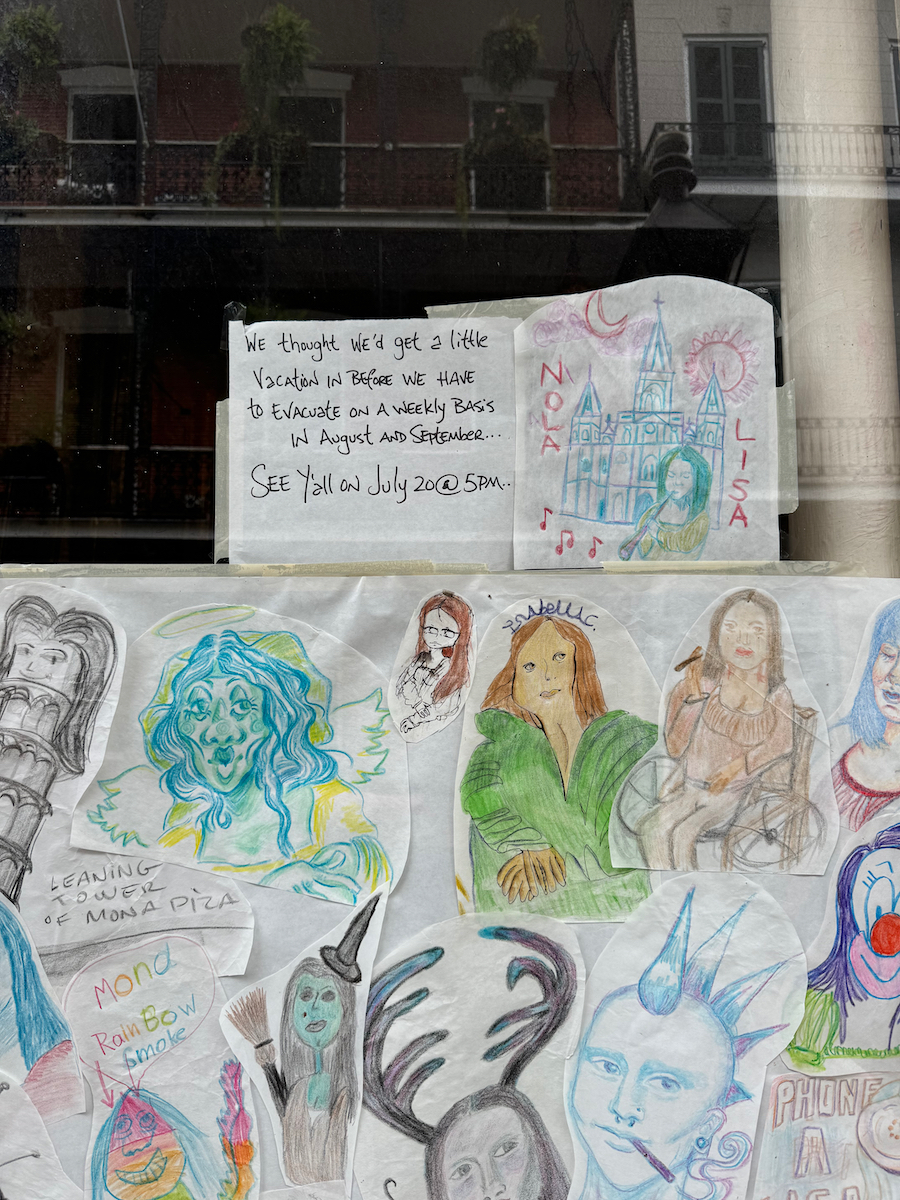 WE thought WE'd get a little
VACATION IN BEFORE WE HAVE
to EVACUATE ON A WEEKLY BASIS
IN August AND SEPTEMBER...
SEE Y'all ON July 20@5PM..
NOLA
LISA
ISAbELLAC.
LEANING
TOWER
OF MONA PIZA
Mona
RainBow
Smoke
PHONE
A